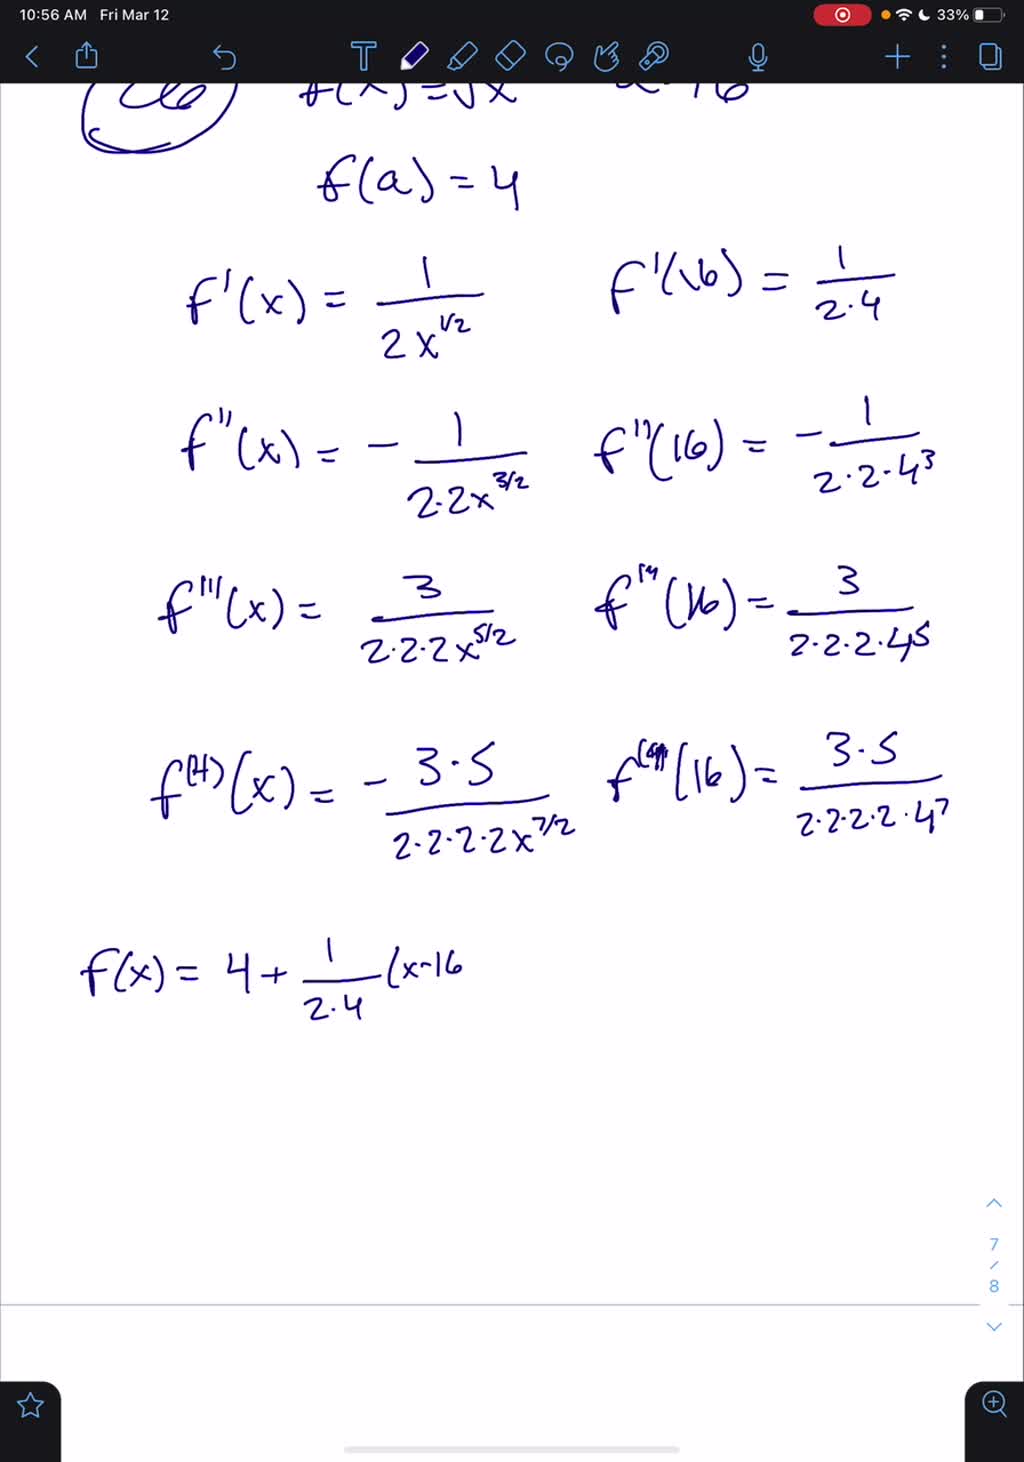 10:56 AM Fri Mar 12 33%
f(x)=√x a=16
f(a)=4
f'(x) = 1/(2x^(1/2)) f'(16) = 1/(2·4)
f''(x) = - 1/(2·2x^(3/2)) f''(16) = - 1/(2·2·4^3)
f'''(x) = 3/(2·2·2x^(5/2)) f'''(16) = 3/(2·2·2·4^5)
f^(4)(x) = - 3·5/(2·2·2·2x^(7/2)) f^(4)(16) = 3·5/(2·2·2·2·4^7)
f(x) = 4 + 1/(2·4) (x-16
7
/
8